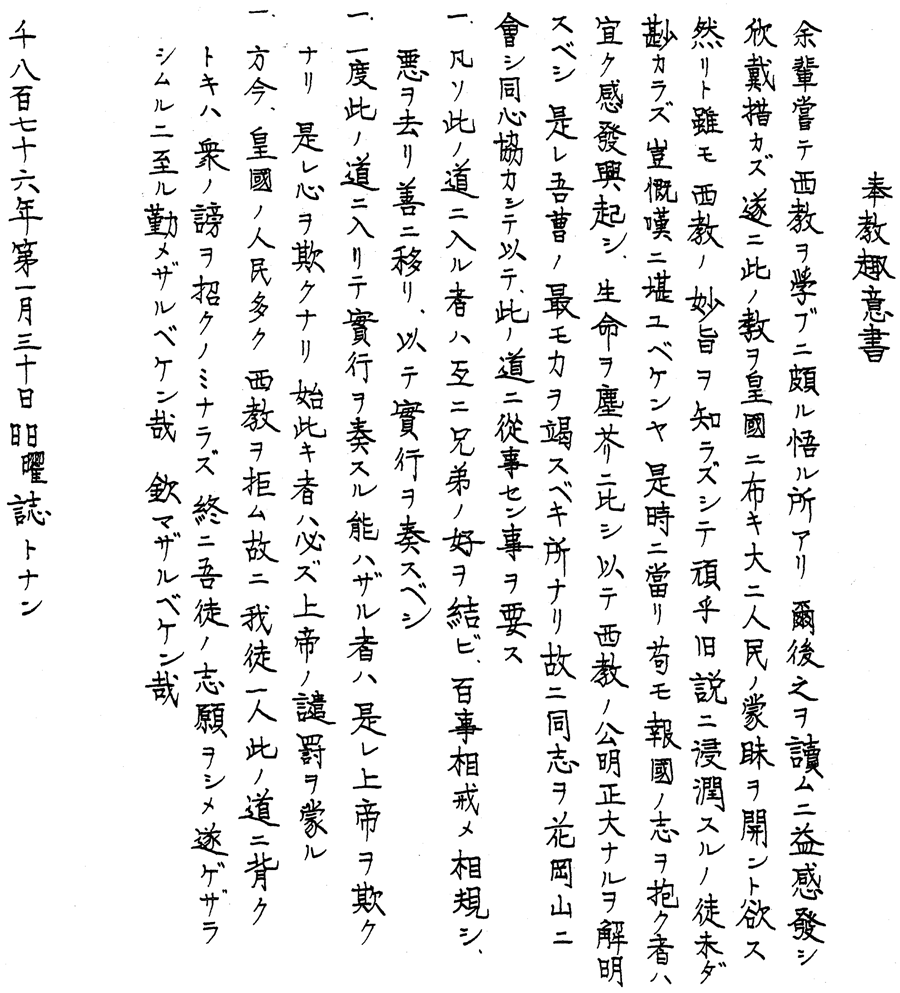 奉教趣意書
余輩嘗テ西教ヲ学ブニ頗ル悟ル所アリ 爾後之ヲ讀ムニ益感發シ
欣戴措カズ遂ニ此ノ教ヲ皇國ニ布キ大ニ人民ノ蒙昧ヲ開ント欲ス
然リト雖モ西教ノ妙旨ヲ知ラズシテ頑乎旧説ニ浸潤スルノ徒未ダ
尠カラズ豈慨嘆ニ堪ユベケンヤ 是時ニ當リ苟モ報國ノ志ヲ抱ク者ハ
宜ク感發興起シ、生命ヲ塵芥ニ比シ以テ西教ノ公明正大ナルヲ解明
スベシ 是レ吾曹ノ最モ力ヲ竭スベキ所ナリ故ニ同志ヲ花岡山ニ
會シ同心協力シテ以テ、此ノ道ニ從事セン事ヲ要ス
一、凡ソ此ノ道ニ入ル者ハ互ニ兄弟ノ好ヲ結ビ、百事相戒メ相規シ、
悪ヲ去リ善ニ移リ、以テ實行ヲ奏スベシ
一、一度此ノ道ニ入リテ實行ヲ奏スル能ハザル者ハ是レ上帝ヲ欺ク
ナリ 是レ心ヲ欺クナリ 始此キ者ハ必ズ上帝ノ譴罰ヲ蒙ル
一、方今、皇國ノ人民多ク西教ヲ拒ム故ニ我徒一人此ノ道ニ背ク
トキハ衆ノ謗ヲ招クノミナラズ終ニ吾徒ノ志願ヲシメ遂ゲザラ
シムルニ至ル勤メザルベケン哉 欽マザルベケン哉
千八百七十六年第一月三十日 日曜誌トナン